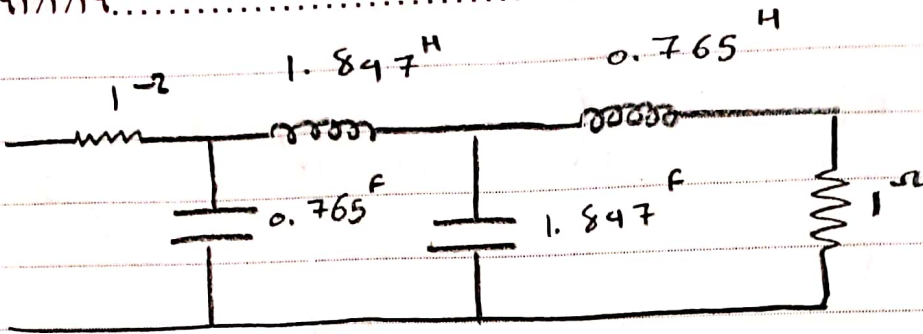 1.847 H
0.765 H
1 Ω
0.765 F
1.847 F
1 Ω